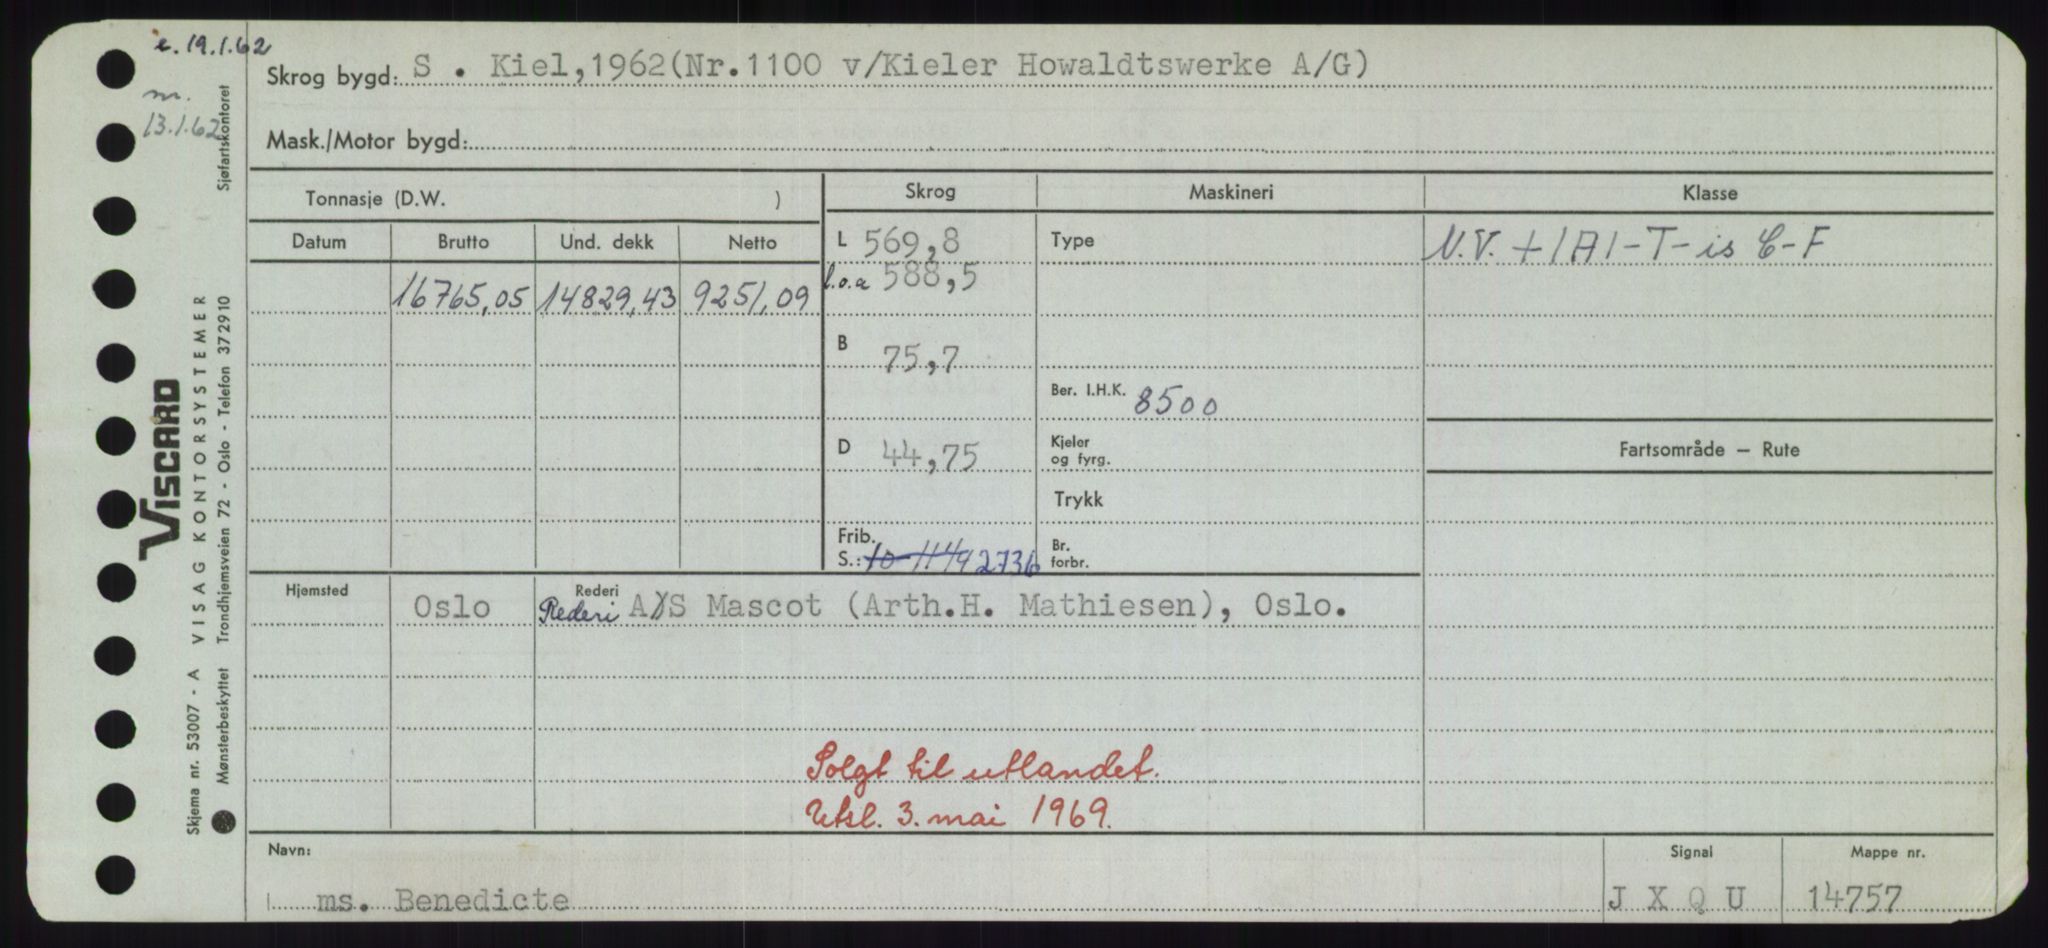 e. 19.1.62
m.
13.1.62
Sjøfartskontoret
Skrog bygd: S . Kiel,1962(Nr.1100 v/Kieler Howaldtswerke A/G)
Mask./Motor bygd:
Tonnasje (D.W. )
Skrog
Maskineri
Klasse
Datum Brutto Und. dekk Netto
16765,05 14829,43 9251,09
L 569,8
l.o.a 588,5
B 75,7
D 44,75
Frib.
S.: 2736
Type
Ber. I.H.K. 8500
Kjeler
og fyrg.
Trykk
Br.
forbr.
N.V. +1A1-T-is C-F
Fartsområde – Rute
Hjemsted
Oslo
Rederi
Rederi A/S Mascot (Arth.H. Mathiesen), Oslo.
Solgt til utlandet.
Utsl. 3. mai 1969.
Navn:
ms. Benedicte
Signal
J X Q U
Mappe nr.
14757
VISCARD
Skjema nr. 53007 - A VISAG KONTORSYSTEMER
Mønsterbeskyttet Trondhjemsveien 72 - Oslo - Telefon 372910